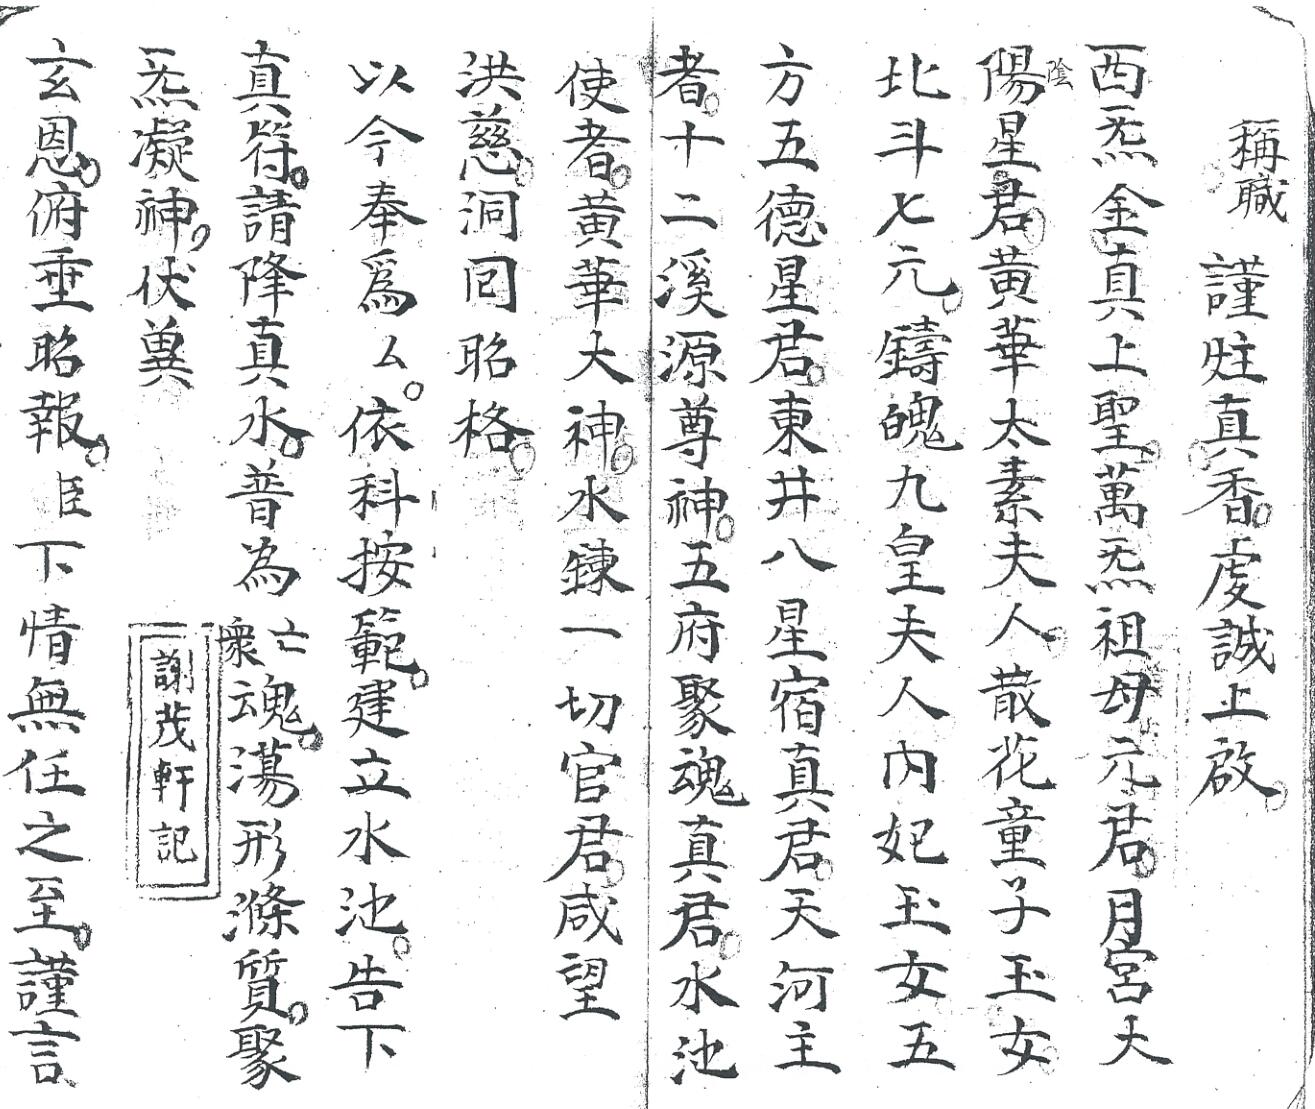 稱職 謹炷真香。虔誠上啟。
西炁金真上聖萬炁祖母元君。月宮大
陰陽星君。黃華太素夫人。散花童子玉女。
北斗七元。鑄魄九皇夫人內妃玉女五
方五德星君。東井八星宿真君。天河主
者。十二溪源尊神。五府聚魂真君。水池
使者。黃華大神。水鍊一切官君。咸望
洪慈。洞回昭格。
以今奉爲厶。依科按範。建立水池。告下
真符。請降真水。普為亡衆魂。湯形滌質。聚
炁凝神，伏兾
玄恩。俯垂昭報。臣下情無任之至。謹言
謝茂軒記